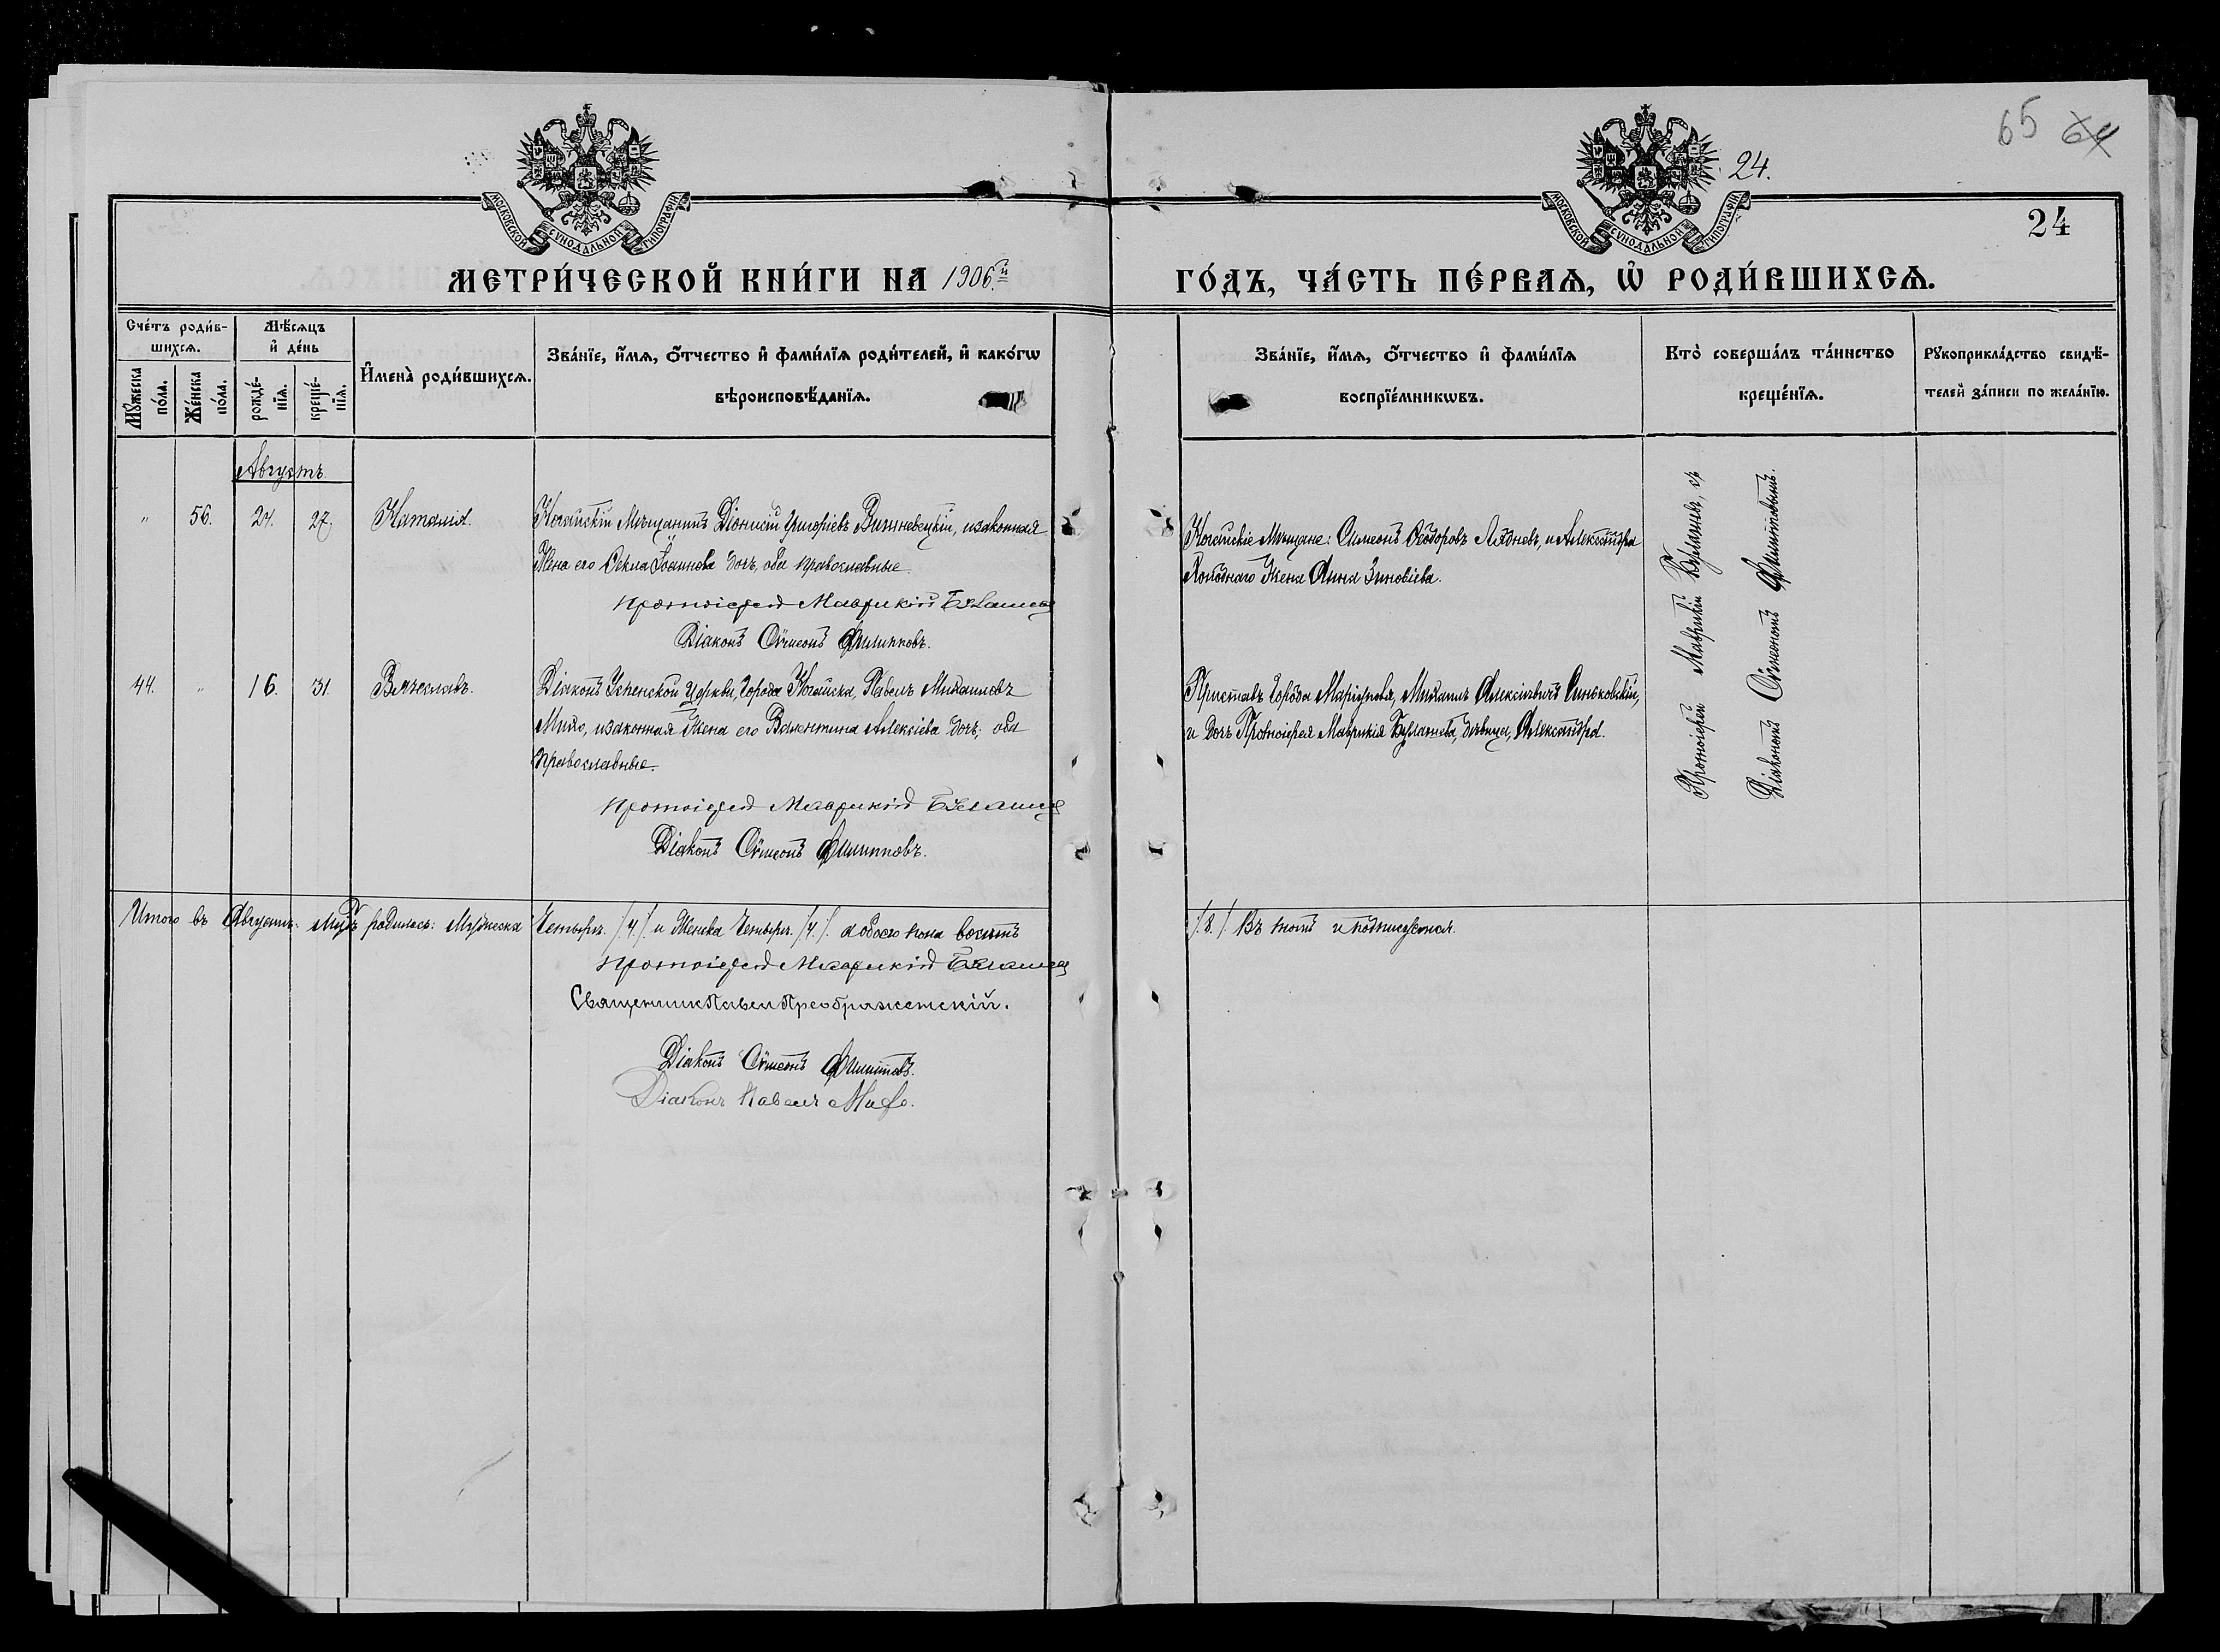 65 64
24.
24
МОСКОВСКОЙ СѴНОДАЛЬНОЙ ТИПОГРАФІИ
МОСКОВСКОЙ СѴНОДАЛЬНОЙ ТИПОГРАФІИ
МЕТРИ́ЧЕСКОЙ КНИ́ГИ НА 1906.й ГО́ДЪ, ЧА́СТЬ ПЕ́РВАѦ, Ѡ҆ РОДИ́ВШИХСѦ.
Сче́тъ роди́в-
шихсѧ.
Мꙋ́жеска
по́ла.
Же́нска
по́ла.
Мѣ́сѧцъ
и҆ де́нь
рожде́-
нїѧ.
креще́-
нїѧ.
И҆мена̀ роди́вшихсѧ.
Зва́нїе, и҆́мѧ, ѻ҆́тчество и҆ фами́лїѧ роди́телей, и҆ како́гѡ
вѣроисповѣ́данїѧ.
Зва́нїе, и҆́мѧ, ѻ҆́тчество и҆ фами́лїѧ
воспрїе́мникѡвъ.
Кто̀ соверша́лъ та́инство
креще́нїѧ.
Рꙋкоприкла́дство свидѣ́-
телей за́писи по жела́нїю.
Августъ.
„ 56. 24. 27. Наталія.
Ногайскій Мѣщанинъ Діонисій Григоріевъ Вишневецкій, и законная
Жена его Ѳекла Іоаннова дочь, оба православные.
Протоіерей Маврикій Булашевъ
Діаконъ Сѵмеонъ Филипповъ.
Ногайскіе Мѣщане: Симеонъ Ѳеодоровъ и Александра
Жена Анна Зиновіева.
44. „ 16. 31. Вячеславъ.
Діаконъ Успенской Церкви, города Ногайска, Павелъ Михаиловъ
и законная Жена его Валентина Алексіева дочь, оба
православные.
Протоіерей Маврикій Булашевъ
Діаконъ Сѵмеонъ Филипповъ.
Приставъ города Маріуполя, Михаилъ Алексіевичъ Синьковскій,
и Дочь Протоіерея Маврикія Булашева, дѣвица, Александра.
Протоіерей Маврикій Булашевъ, съ
Діакономъ Сѵмеономъ Филипповымъ.
Итого въ Августѣ родилось: Мужеска Четыре /4/ и Женска Четыре /4/ а обоего пола восемь /8/. Въ томъ и подписуемся.
Протоіерей Маврикій Булашевъ
Священник Павел Преображенскій.
Діаконъ Сѵмеонъ Филипповъ.
Діаконъ Павелъ